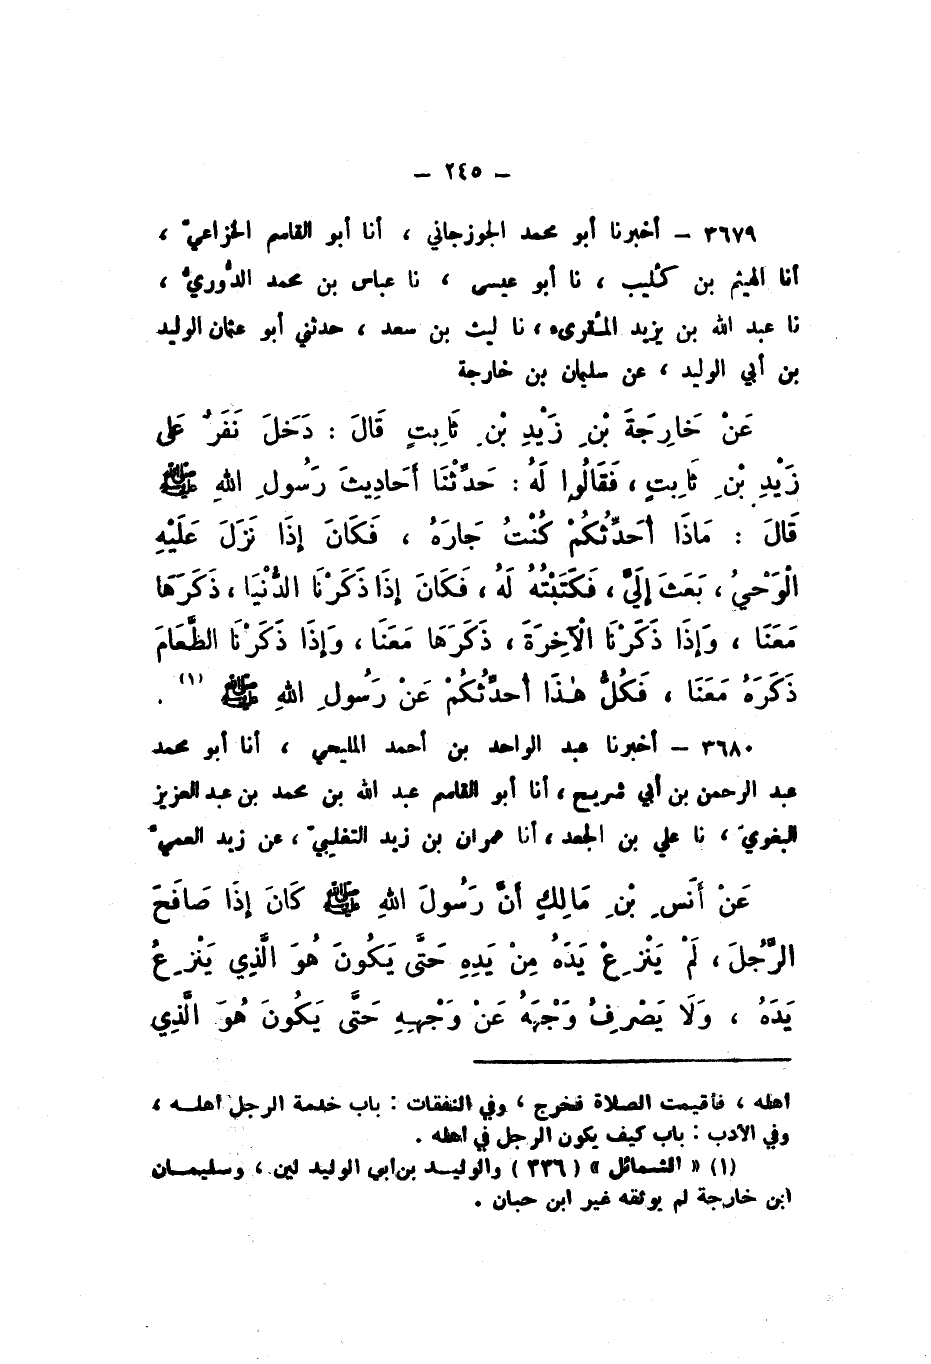 – ٢٤٥ –
٣٦٧٩ – أخبرنا أبو محمد الجوزجاني ، أنا أبو القاسم الخزاعيّ ،
أنا الهيثم بن كُليب ، نا أبو عيسى ، نا عباس بن محمد الدُّوريُّ ،
نا عبد الله بن يزيد المُقرىء ، نا ليث بن سعد ، حدثني أبو عثمان الوليد
بن أبي الوليد ، عن سليمان بن خارجة
عَنْ خَارِجَةَ بْنِ زَيْدِ بْنِ ثَابِتٍ قَالَ : دَخَلَ نَفَرٌ عَلى
زَيْدِ بْنِ ثَابِتٍ ، فَقَالُوا لَهُ : حَدِّثْنَا أَحَادِيثَ رَسُولِ اللهِ ﷺ
قَالَ : مَاذَا أُحَدِّثُكُمْ كُنْتُ جَارَهُ ، فَكَانَ إِذَا نَزَلَ عَلَيْهِ
الْوَحْيُ ، بَعَثَ إِلَيَّ ، فَكَتَبْتُهُ لَهُ ، فَكَانَ إِذَا ذَكَرْنَا الدُّنْيَا ، ذَكَرَهَا
مَعَنَا ، وَإِذَا ذَكَرْنَا الْآخِرَةَ ، ذَكَرَهَا مَعَنَا ، وَإِذَا ذَكَرْنَا الطَّعَامَ
ذَكَرَهُ مَعَنَا ، فَكُلُّ هٰذَا أُحَدِّثُكُمْ عَنْ رَسُولِ اللهِ ﷺ (١) .
٣٦٨٠ – أخبرنا عبد الواحد بن أحمد المليحي ، أنا أبو محمد
عبد الرحمن بن أبي شريح ، أنا أبو القاسم عبد الله بن محمد بن عبد العزيز
البغويّ ، نا علي بن الجعد ، أنا عمران بن زيد التغلبيّ ، عن زيد العميّ
عَنْ أَنَسِ بْنِ مَالِكٍ أَنَّ رَسُولَ اللهِ ﷺ كَانَ إِذَا صَافَحَ
الرَّجُلَ ، لَمْ يَنْزِعْ يَدَهُ مِنْ يَدِهِ حَتَّى يَكُونَ هُوَ الَّذِي يَنْزِعُ
يَدَهُ ، وَلَا يَصْرِفُ وَجْهَهُ عَنْ وَجْهِهِ حَتَّى يَكُونَ هُوَ الَّذِي
أهله ، فأقيمت الصلاة فخرج ، وفي النفقات : باب خدمة الرجل أهله ،
وفي الأدب : باب كيف يكون الرجل في أهله .
(١) « الشمائل » (٣٣٦) والوليد بن أبي الوليد لين ، وسليمان
ابن خارجة لم يوثقه غير ابن حبان .